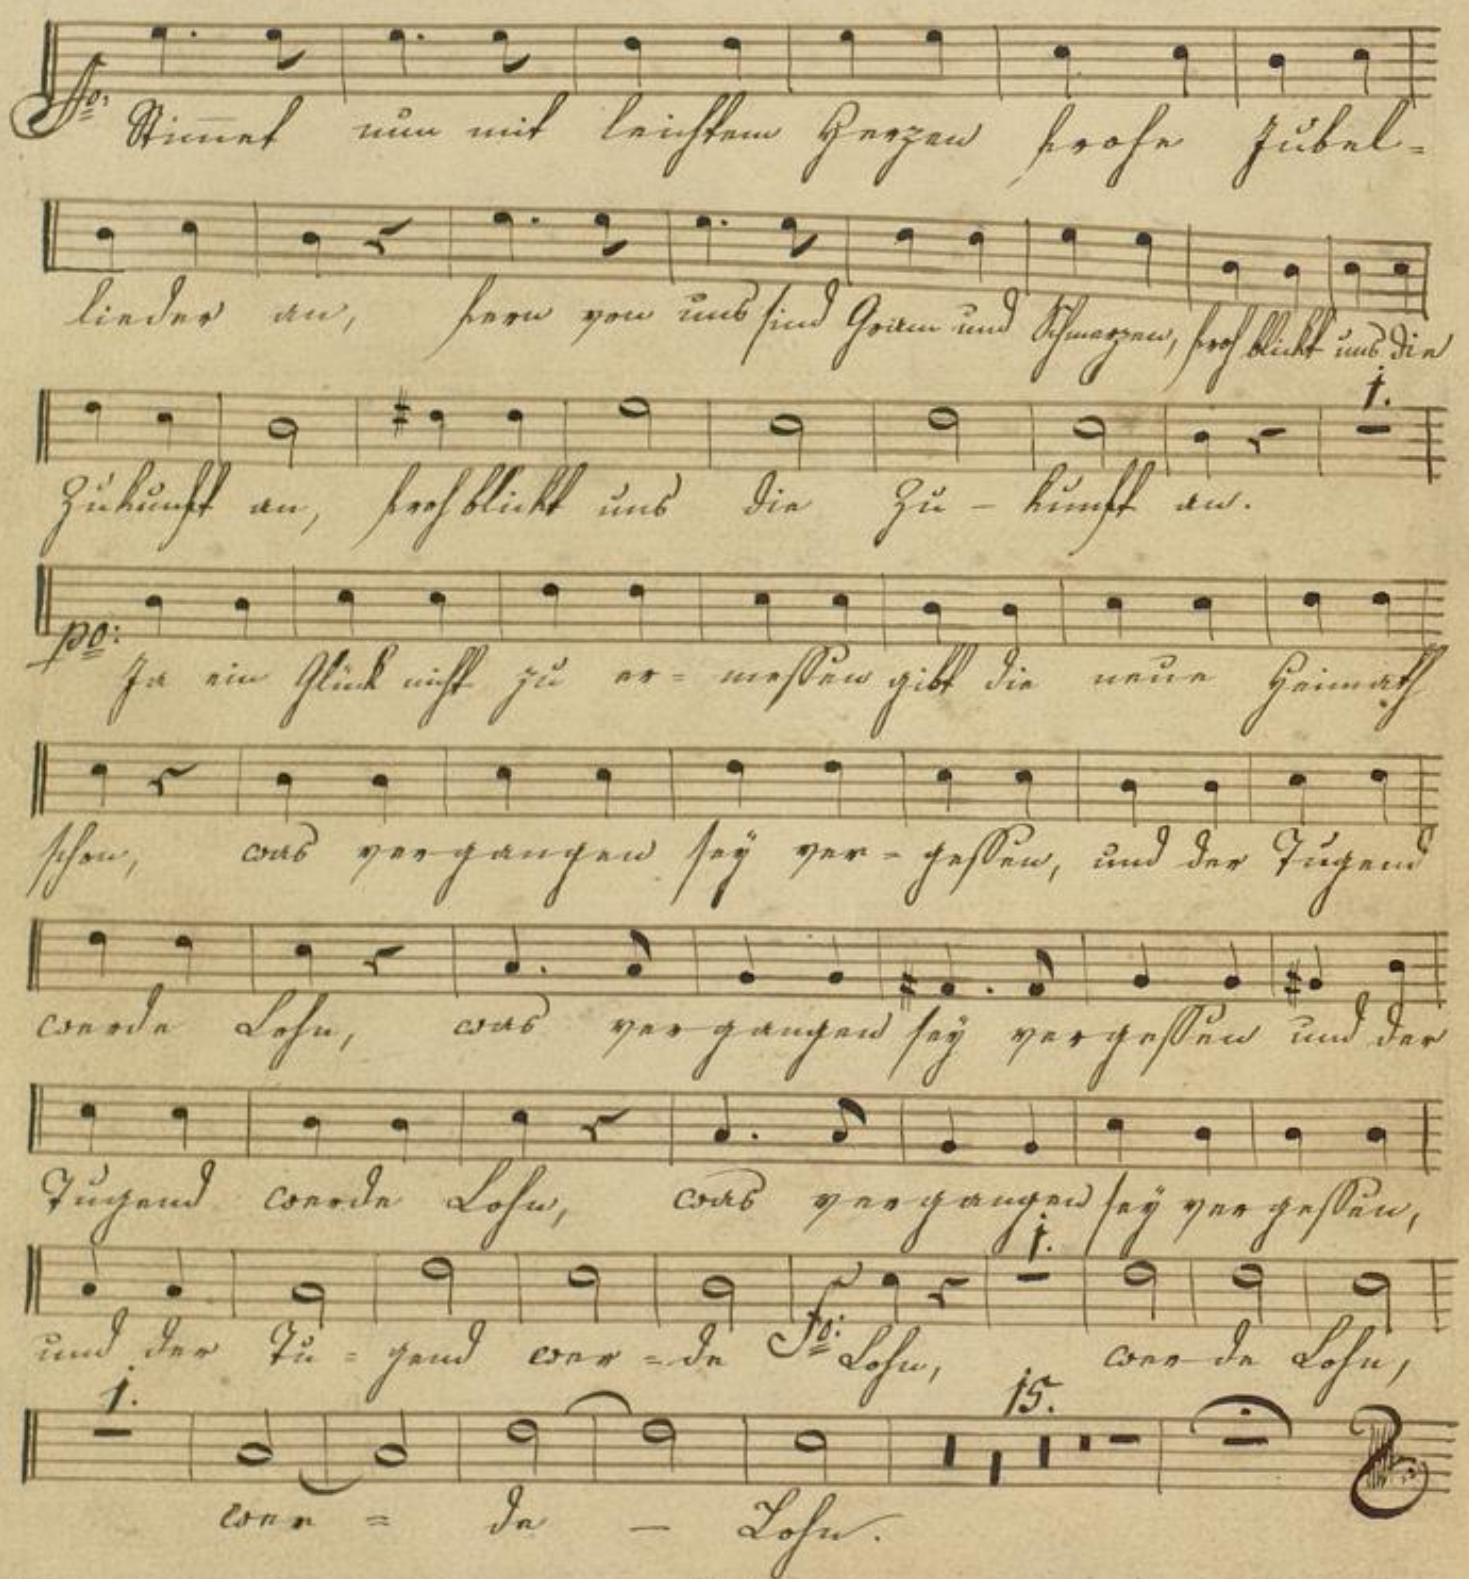 fo: Stim̅et nun mit leichtem Herzen frohe Jubel=
lieder an, fern von uns sind Gram und Schmerzen, froh blickt uns die
1.
Zukunft an, froh blickt uns die Zu - kunft an.
po: Ja ein Glück nicht zu er= messen gibt die neue Heimath
schon, was vergangen sey ver= gessen, und der Tugend
werde Lohn, was vergangen sey vergessen und der
Tugend werde Lohn, was vergangen sey vergessen,
1.
und der Tu= gend wer= de fo: Lohn, werde Lohn,
1. 15.
wer = de - Lohn.